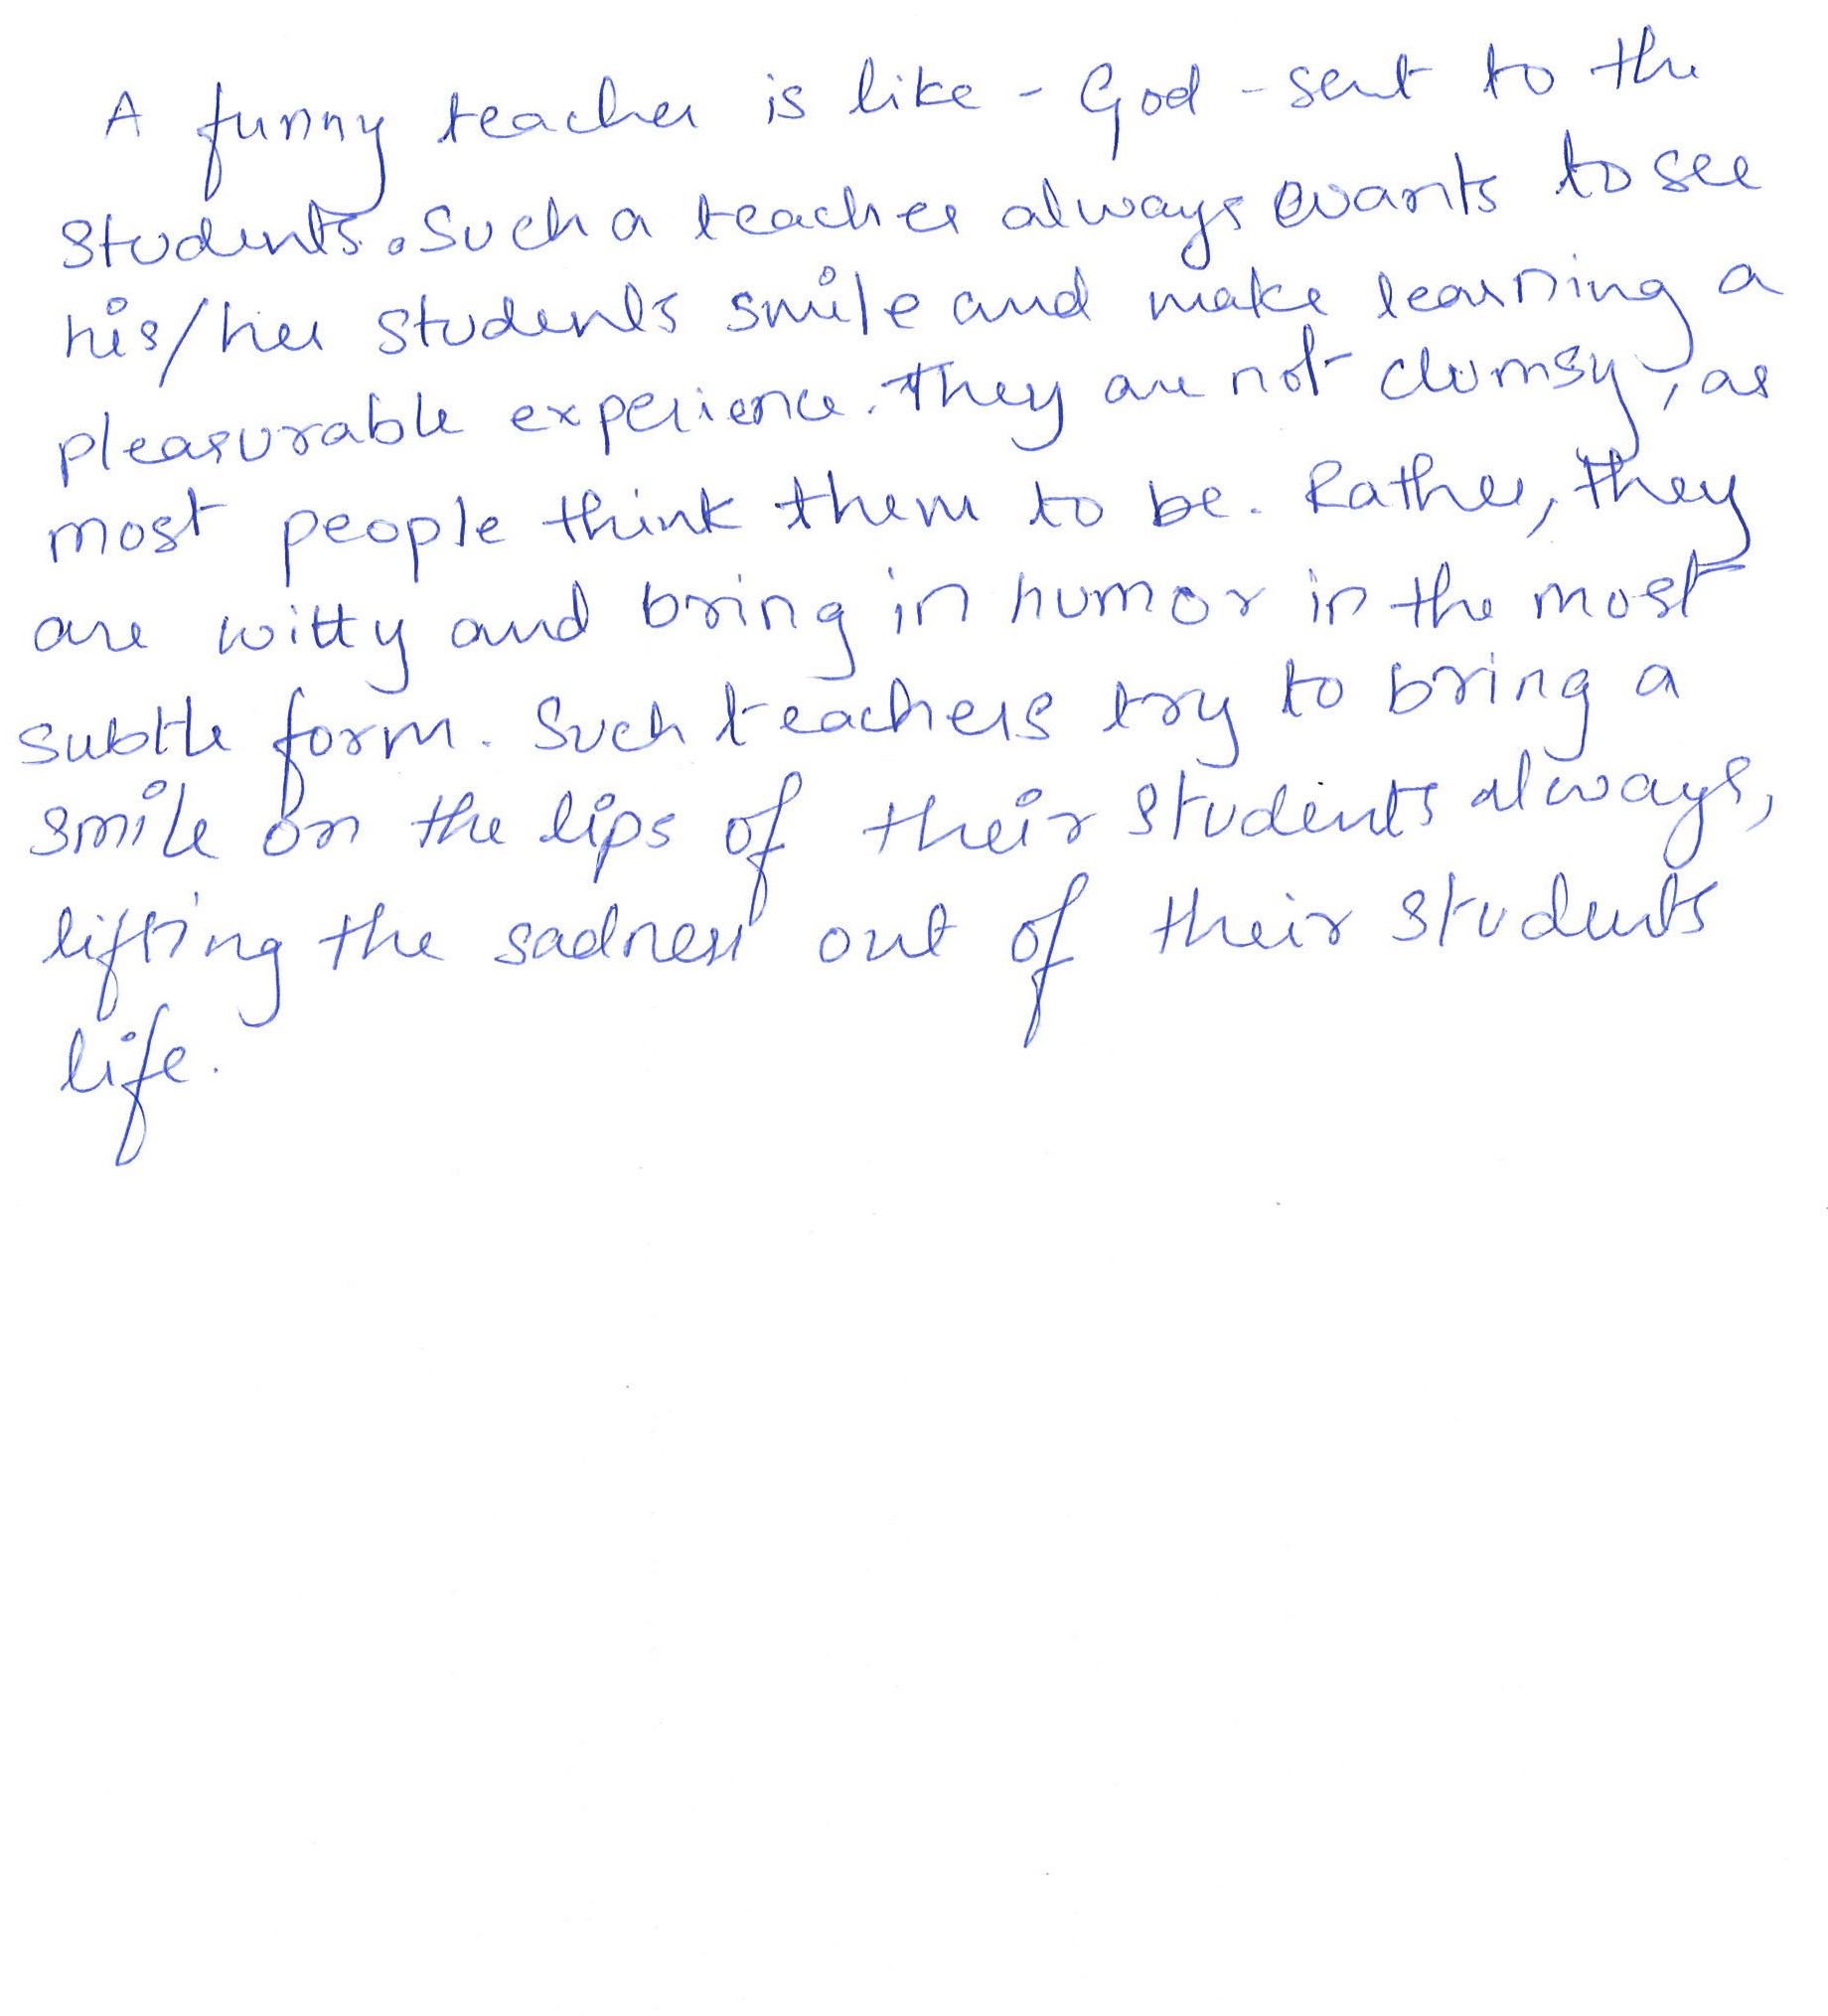 A funny teacher is like - God - sent to the
students. Such a teacher always wants to see
his/her students smile and make learning a
pleasurable experience. They are not clumsy, as
most people think them to be. Rather, they
are witty and bring in humor in the most
subtle form. Such teachers try to bring a
smile on the lips of their students always,
lifting the sadness out of their students
life.